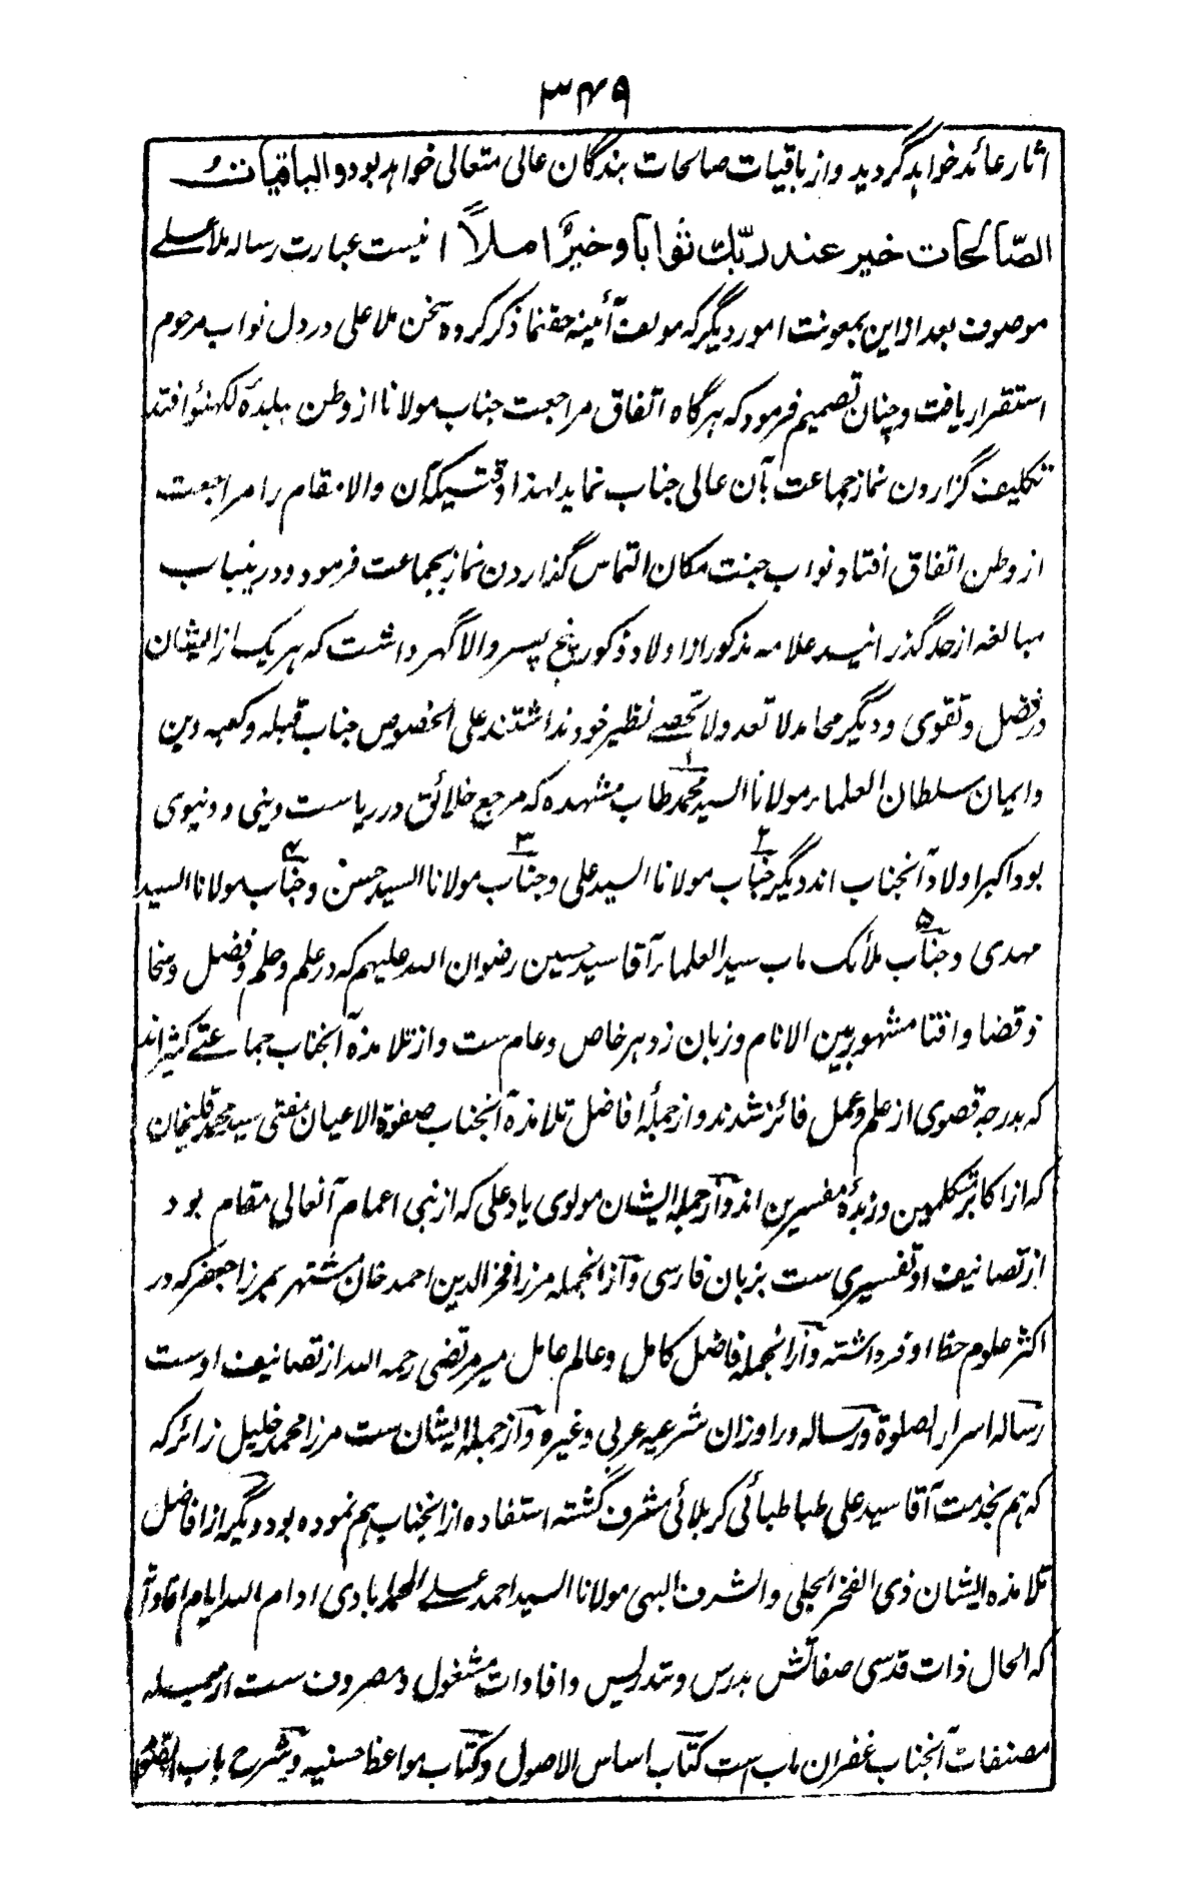 ۳۴۹
اثار عائد خواهد گردید و از باقیات صالحات بندگان عالی متعالی خواهد بود والباقیات
الصّالحات خیر عند ربّك ثوابا و خیرٌ املاً انیست عبارت رساله ملا علے
موصوف بعد ازاین بمعونت امور دیگر که مولف آئینه حقنما ذکر کرده سخن ملا علی در دل نواب مرحوم
استقرار یافت و چنان تصمیم فرمود که هرگاه اتفاق مراجعت جناب مولانا از وطن ببلدهٔ لکهنؤ افتد
تکلیف گزاردن نماز جماعت بآن عالی جناب نماید لهذا وقتیکه آن والا مقام را مراجعت
از وطن اتفاق افتاد نواب جنت مکان التماس گذاردن نماز بجماعت فرمود و درینباب
مبالغه از حد گذرانید علامه مذکور از اولاد ذکور پنج پسر والا گهر داشت که هر یک از ایشان
در فضل و تقوی و دیگر محامد لا تعد ولا تحصے نظیر خود نداشتند علی الخصوص جناب قبله و کعبه دین
و ایمان سلطان العلماء مولانا السید محمد۱ طاب مشهده که مرجع خلائق در ریاست دینی و دنیوی
بود اکبر اولاد آنجناب اند دیگر جناب۲ مولانا السید علی و جناب۳ مولانا السید حسن و جناب۴ مولانا السید
مهدی و جناب۵ ملائک ماب سید العلماء آقا سید حسین رضوان الله علیهم که در علم و حلم و فضل و سخا
و قضا و افتا مشهور بین الانام و زبان زد هر خاص و عام ست و از تلامذهٔ آنجناب جماعتے کثیر اند
که بدرجهٔ قصوی از علم و عمل فائز شدند و از جملهٔ افاضل تلامذهٔ آنجناب صفوة الاعیان مفتی سید محمد قلیخان
که از اکابر متکلمین و زبدهٔ مفسرین اند و از جمله ایشان مولوی یاد علی که از بنی اعمام آنعالی مقام بود
از تصانیف او تفسیری ست بزبان فارسی و از انجمله مرزا فخر الدین احمد خان مشتهر بمرزا جعفر که در
اکثر علوم حظ اوفر داشته و از انجمله فاضل کامل و عالم عامل میر مرتضی رحمه الله از تصانیف اوست
رساله اسرار الصلوة و رساله در اوزان شرعیه عربی و غیره و از جمله ایشان ست مرزا محمد خلیل زائر که
که هم بخدمت آقا سید علی طباطبائی کربلائی مشرف گشته استفاده از انجناب هم نموده بود دیگر از افاضل
تلامذه ایشان ذی الفخر الجلی والشرف البهی مولانا السید احمد علے المحمدابادی ادام الله ایام افاداته
که الحال ذات قدسی صفاتش بدرس و تدریس و افادات مشغول و مصروف ست از جمله
مصنفات آنجناب غفران ماب ست کتاب اساس الاصول و کتاب مواعظ حسنیه و شرح باب الصوم